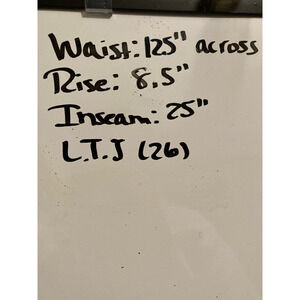 Waist: 125" across
Rise: 8.5"
Inseam: 25"
L.T.J (26)